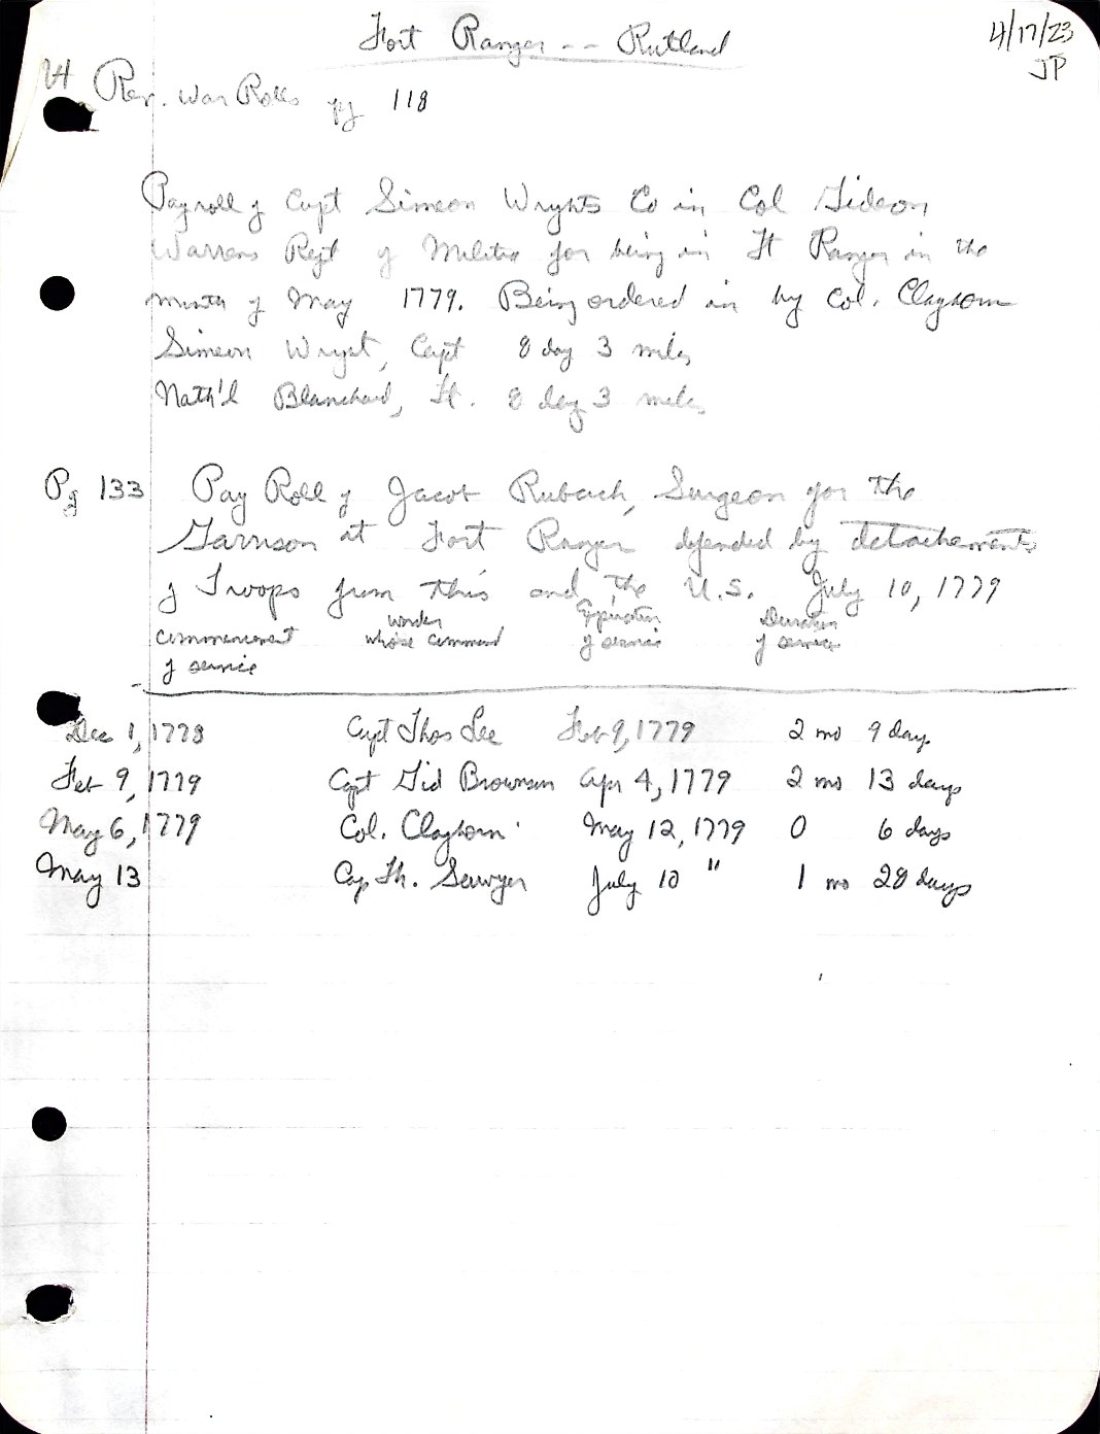 Fort Ranger -- Rutland
4/17/23
JP
Vt Rev. War Rolls pg 118
Payroll of Capt Simeon Wrights Co in Col Gideon
Warrens Regt of Militia for being in Ft Ranger in the
month of May 1779. Being ordered in by Col. Claghorn
Simeon Wright, Capt 8 day 3 miles
Nath'l Blanchard, Lt. 8 day 3 miles
Pg 133 Pay Roll of Jacob Ruback, Surgeon for the
Garrison at Fort Ranger defended by detachements
of Troops from this and the U.S. July 10, 1779
commencement of service
under whose command
Expiration of service
Duration of service
Dec 1, 1778 Capt Thos Lee Feb 9, 1779 2 mo 9 day
Feb 9, 1779 Capt Gid Brownson Apr 4, 1779 2 mo 13 days
May 6, 1779 Col. Claghorn May 12, 1779 0 6 days
May 13 Cap Th. Sawyer July 10 " 1 mo 28 days